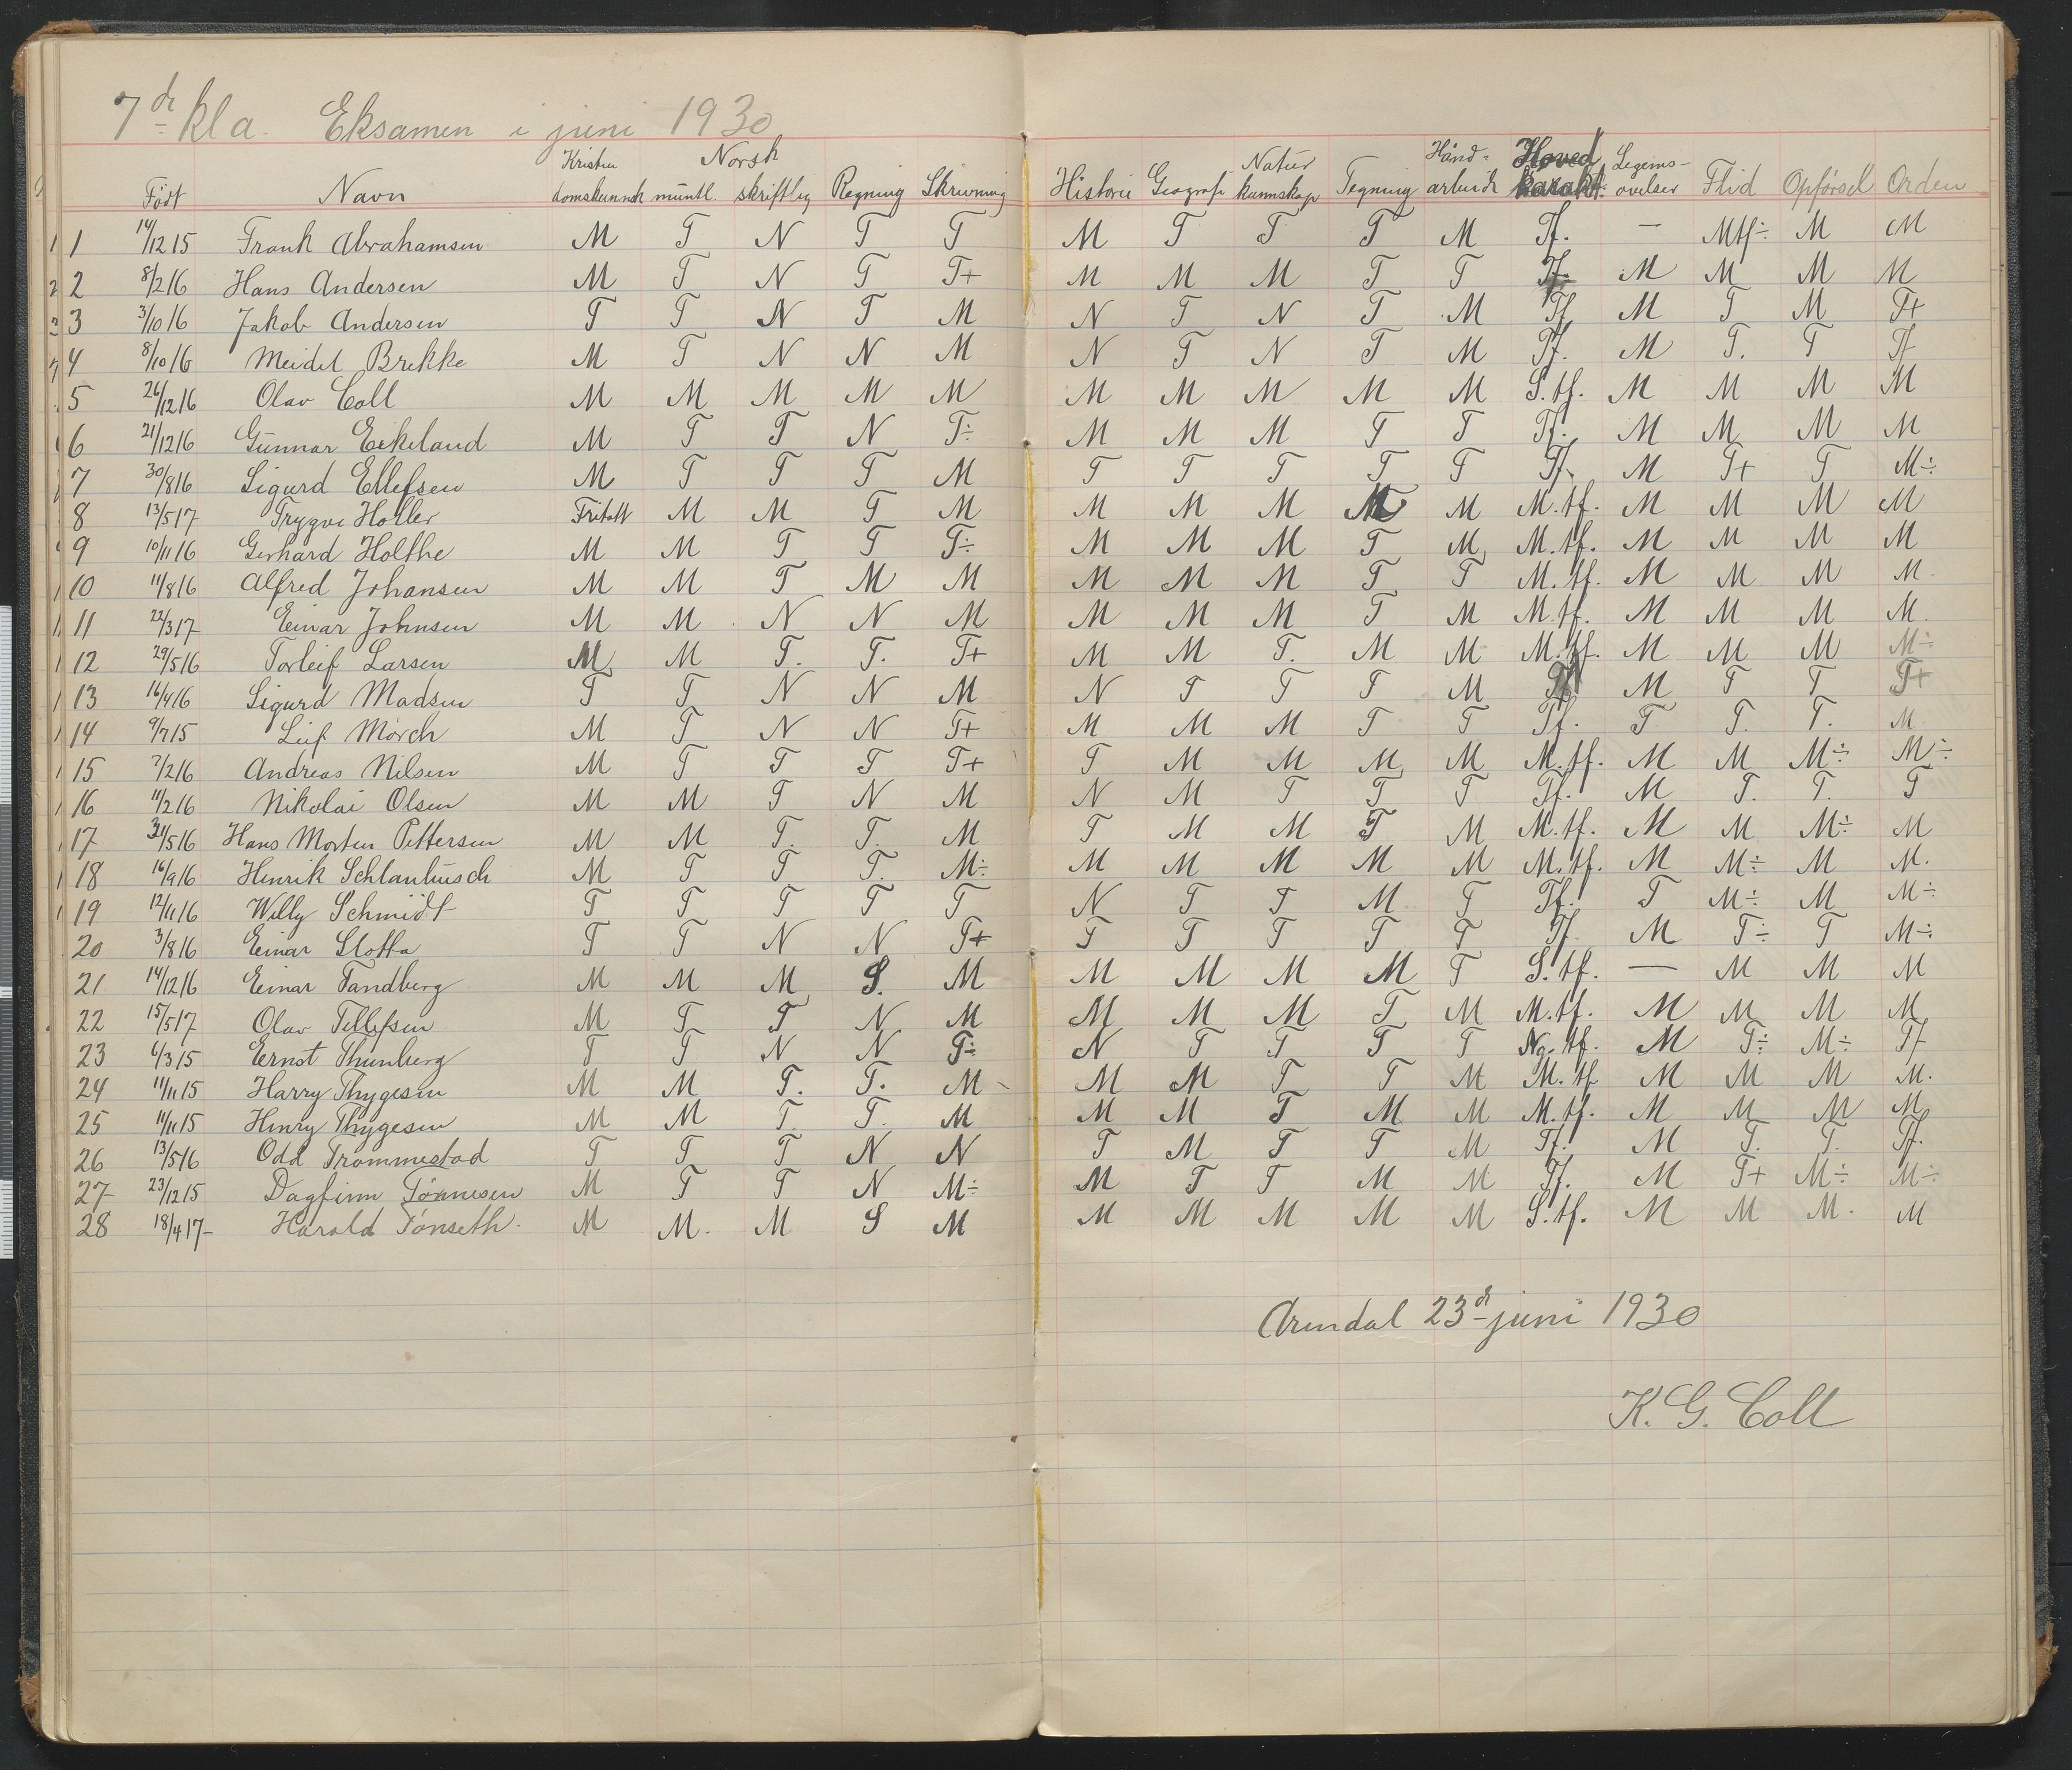 7de kla. Eksamen i juni 1930
Født Navn Kristendomskunnsk Norsk muntl. skriftlig Regning Skrivning Historie Geografi Naturkunnskap Tegning Håndarbeide Hovedkarakt. Legemsøvelser Flid Opførsel Orden
1 14/12 15 Frank Abrahamsen M T N T T M T T T M Tf. — Mtf÷ M M
2 8/2 16 Hans Andersen M T N T T+ M M M T T Tf. M M M M
3 3/10 16 Jakob Andersen T T N T M N T N T M Tf M T M T+
4 8/10 16 Meidel Brekke M T N N M N T N T M Tf. M T. T Tf
5 26/12 16 Olav Coll M M M M M M M M M M S.tf. M M M M
6 21/12 16 Gunnar Eikeland M T T N T÷ M M M T T Tf. M M M M
7 30/8 16 Sigurd Ellefsen M T T T M T T T T T Tf. M T+ T M÷
8 13/5 17 Trygve Holler Fritatt M M T M M M M M M.tf. M M M M
9 10/11 16 Gerhard Holthe M M T T T÷ M M M T M M.tf. M M M M
10 11/8 16 Alfred Johansen M M T M M M M M T T M.tf. M M M M
11 22/3 17 Einar Johnsen M M N N M M M M T M M.tf. M M M M.
12 29/5 16 Torleif Larsen M M T. T. T+ M M T. M M M.tf. M M M M÷
13 16/4 16 Sigurd Madsen T T N N M N T T T M M T T T+
14 9/7 15 Leif Mørch M T N N T+ M M M T T Tf. T T. T. M
15 7/2 16 Andreas Nilsen M T T T T+ T M M M M M.tf. M M M÷ M÷
16 11/2 16 Nikolai Olsen M M T N M N M T T T Tf. M T. T. T
17 31/5 16 Hans Morten Pettersen M M T. T. M T M M T M M.tf. M M M÷ M
18 16/9 16 Henrik Schlanbusch M T T T. M÷ M M M M M M.tf. M M÷ M M.
19 12/11 16 Willy Schmidt T T T T T N T T M T Tf. T M÷ M M÷
20 3/8 16 Einar Slotta T T N N T+ T T T T T Tf. M T÷ T M÷
21 14/12 16 Einar Tandberg M M M S. M M M M M T S.tf. — M M M
22 15/5 17 Olav Tellefsen M T T N M M M M T M M.tf. M M M M
23 6/3 15 Ernst Thunberg T T N N T÷ N T T T T Ng.tf. M T÷ M÷ Tf
24 11/11 15 Harry Thygesen M M T. T. M M M T T M M.tf M M M M.
25 11/11 15 Henry Thygesen M M T. T. M M M T M M M.tf. M M M M
26 13/5 16 Odd Trommestad T T T N N T M T T M Tf. M T. T. Tf.
27 23/12 15 Dagfinn Tønnesen M T T N M÷ M T T M M Tf. M T+ M÷ M÷
28 18/4 17 Harald Tønseth. M M. M S M M M M M M S.tf. M M M. M
Arendal 23de juni 1930
K. G. Coll